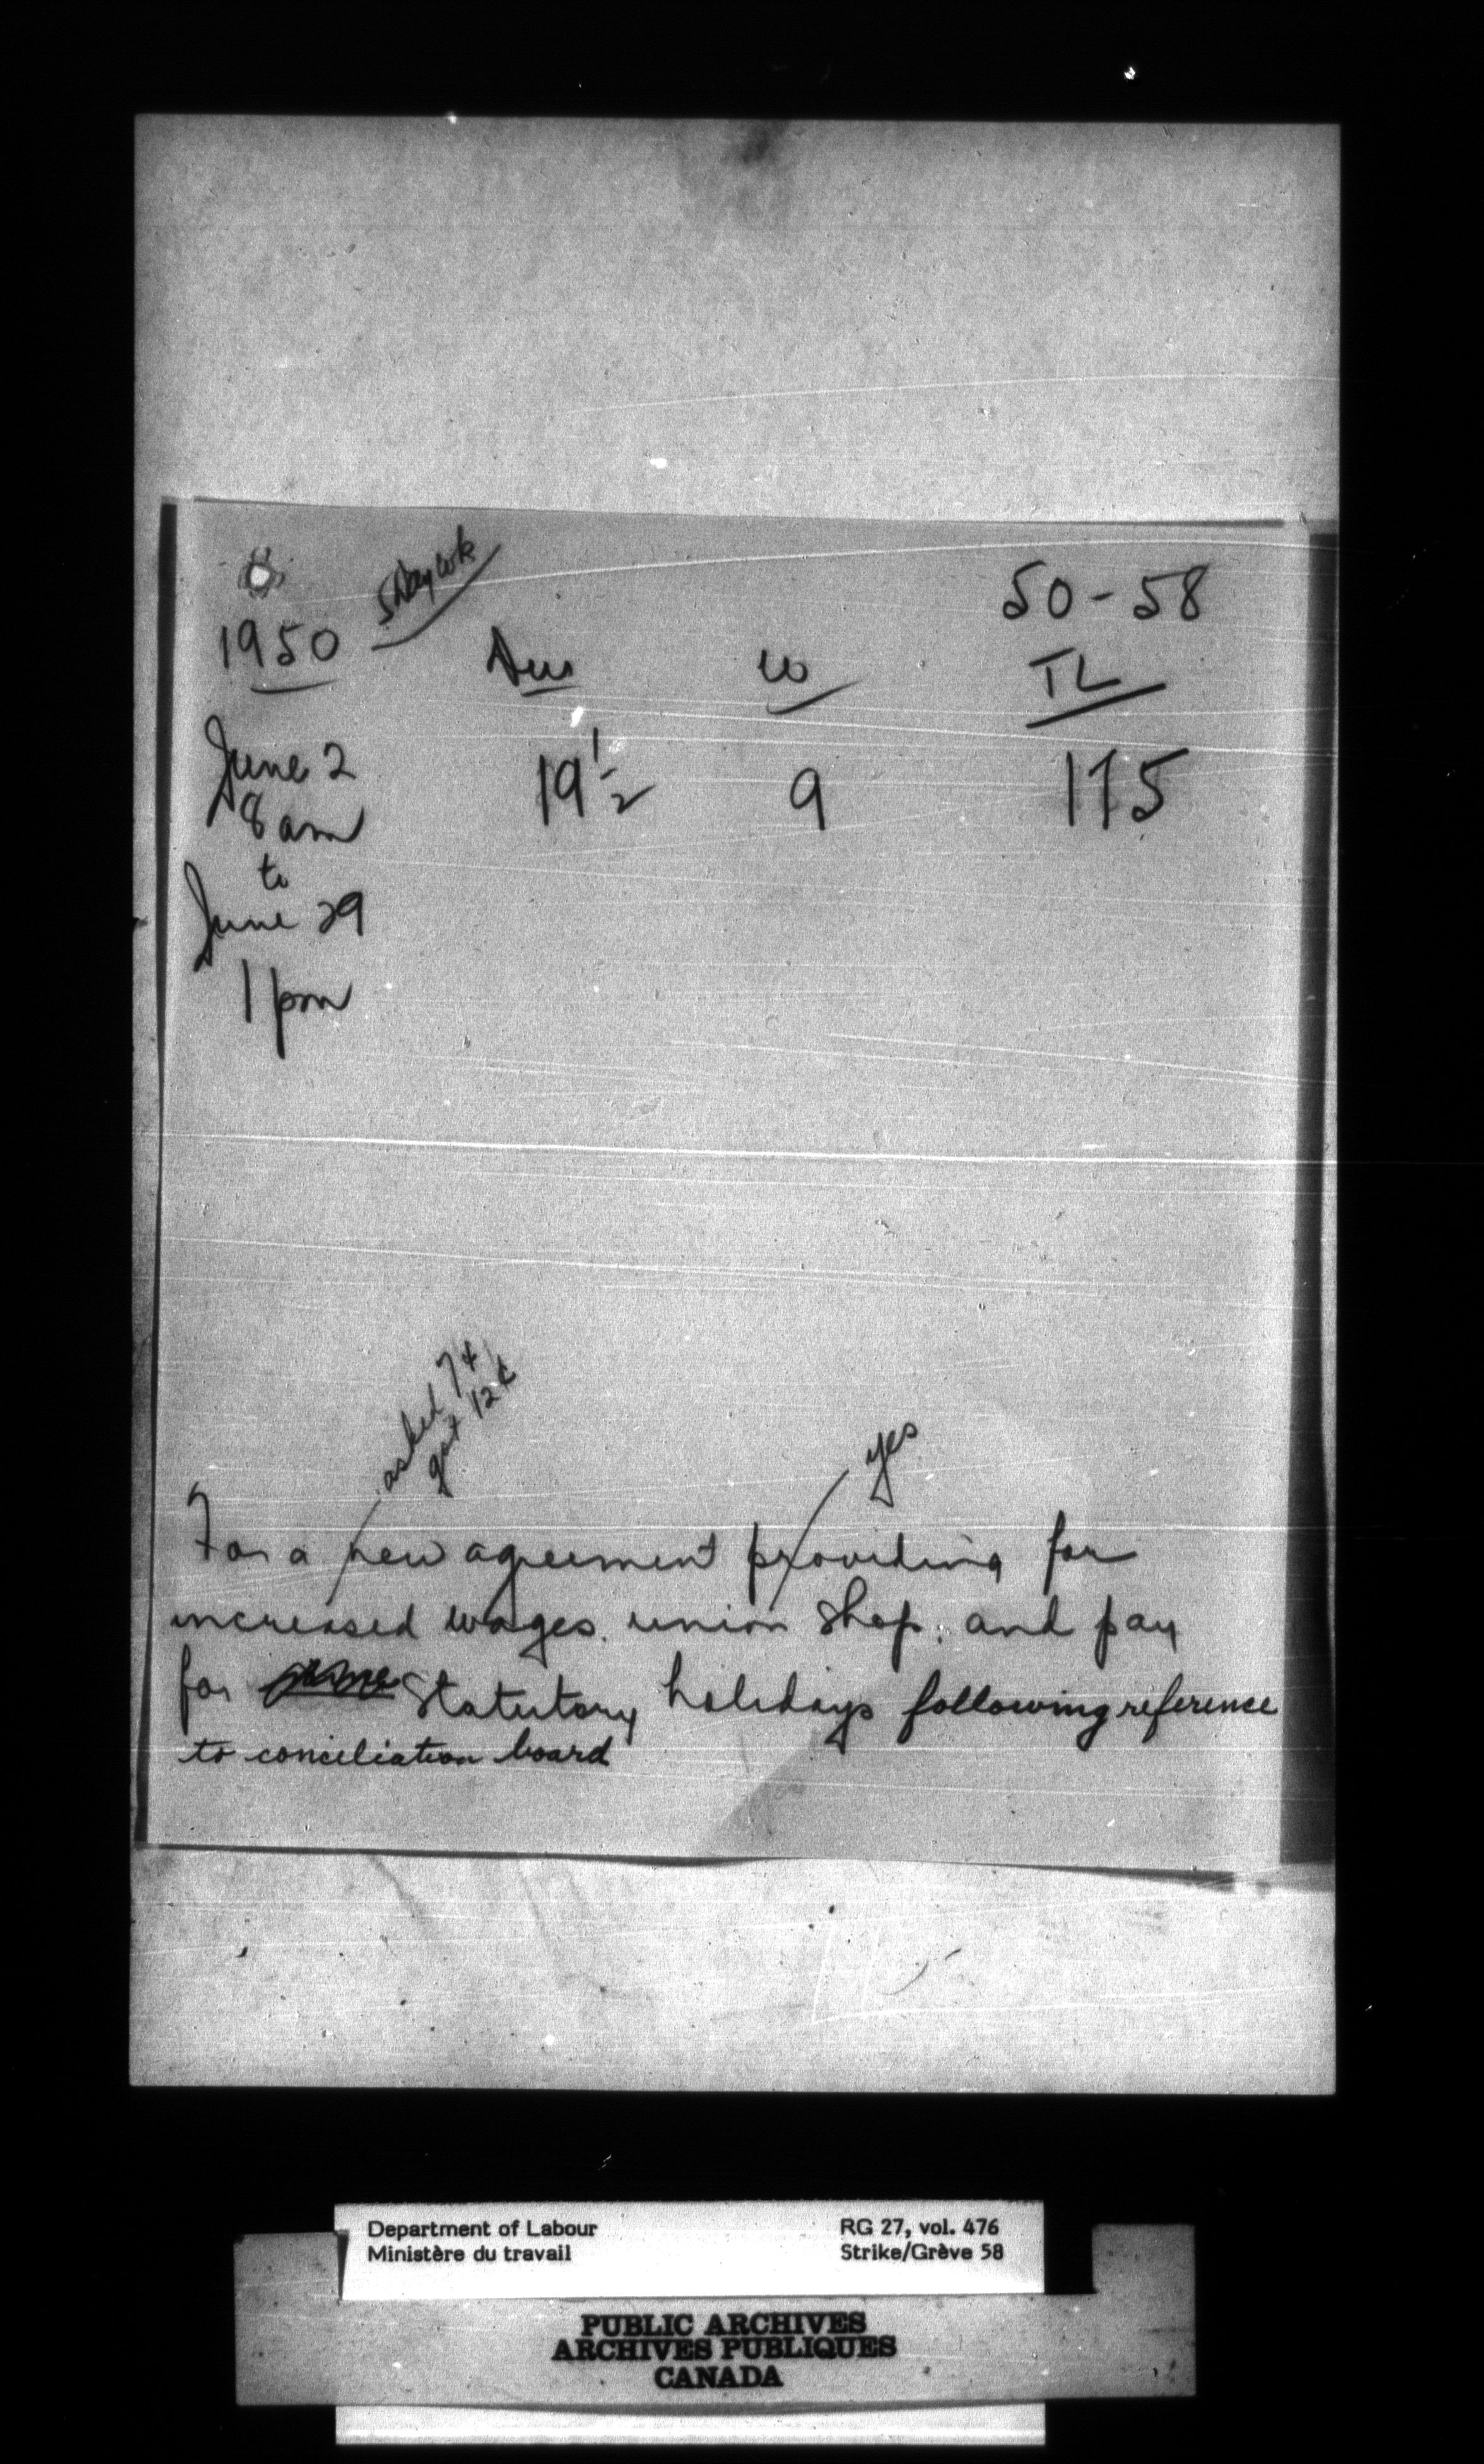 50-58
1950 5 Day wk
Dur W TL
June 2 19 1/2 9 175
8 am
to
June 29
1 pm
asked 7¢
got 12¢
yes
For a new agreement providing for
increased wages, union shop, and pay
for statutory holidays following reference
to conciliation board
Department of Labour RG 27, vol. 476
Ministère du travail Strike/Grève 58
PUBLIC ARCHIVES
ARCHIVES PUBLIQUES
CANADA